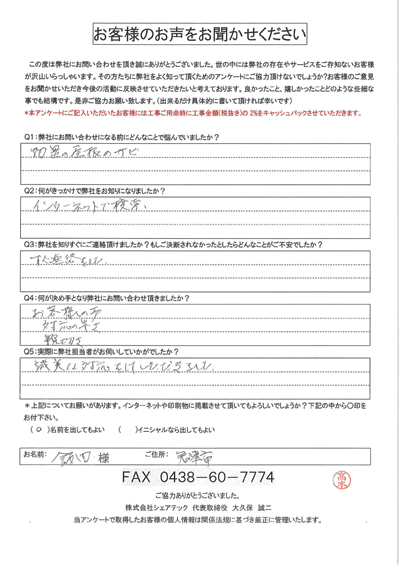 お客様のお声をお聞かせください
この度は弊社にお問い合わせを頂き誠にありがとうございました。世の中には弊社の存在やサービスをご存知ないお客様
が沢山いらっしゃいます。その方たちに弊社をよく知って頂くためのアンケートにご協力頂けないでしょうか?お客様のご意見
をお聞かせいただき今後の活動に反映させていただきたいと考えております。良かったこと、嬉しかったことどのような些細な
事でも結構です。是非ご協力お願い致します。(出来るだけ具体的に書いて頂ければ幸いです)
*本アンケートにご記入いただいたお客様には工事ご用命時に工事金額(税抜き)の 2%をキャッシュバックさせていただきます。
Q1:弊社にお問い合わせになる前にどんなことで悩んでいましたか?
物置の屋根のサビ
Q2:何がきっかけで弊社をお知りになりましたか?
インターネットで検索
Q3:弊社を知りすぐにご連絡頂けましたか?もしご決断されなかったとしたらどんなことがご不安でしたか?
Q4:何が決め手となり弊社にお問い合わせ頂きましたか?
お客様の声
対応の早さ
親切さ
Q5:実際に弊社担当者がお伺いしていかがでしたか?
*上記についてお願いがあります。インターネットや印刷物に掲載させて頂いてもよろしいでしょうか?下記の中から〇印を
お付下さい。
(〇)名前を出してもよい ( )イニシャルなら出してもよい
お名前: 様 ご住所: 君津市
FAX 0438-60-7774
ご協力ありがとうございました。
株式会社シェアテック 代表取締役 大久保 誠二
当アンケートで取得したお客様の個人情報は関係法規に基づき厳正に管理いたします。